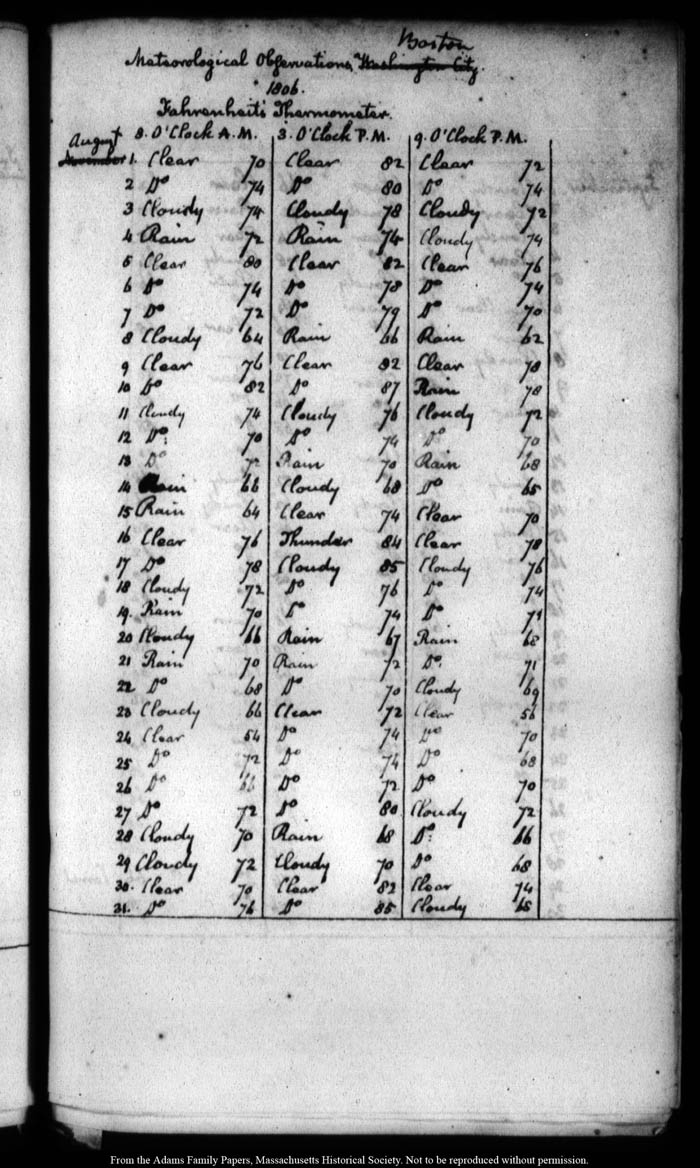 Boston
Meteorological Observations, Washington City.
1806.
Fahrenheit's Thermometer.
August 8. O'Clock A.M. 3. O'Clock P.M. 9. O'Clock P.M.
November 1. Clear 70 Clear 82 Clear 72
2 Do 74 Do 80 Do 74
3 Cloudy 74 Cloudy 78 Cloudy 72
4 Rain 72 Rain 74 Cloudy 74
5 Clear 80 Clear 82 Clear 76
6 Do 74 Do 78 Do 74
7 Do 72 Do 79 Do 70
8 Cloudy 64 Rain 66 Rain 62
9 Clear 76 Clear 82 Clear 78
10 Do 82 Do 87 Rain 78
11 Cloudy 74 Cloudy 76 Cloudy 72
12 Do: 70 Do 74 Do 70
13 Do 72 Rain 70 Rain 68
14 Rain 66 Cloudy 68 Do 65
15 Rain 64 Clear 74 Clear 70
16 Clear 76 Thunder 84 Clear 78
17 Do 78 Cloudy 85 Cloudy 76
18 Cloudy 72 Do 76 Do 74
19. Rain 70 Do 74 Do 71
20 Cloudy 66 Rain 67 Rain 68
21 Rain 70 Rain 72 Do. 71
22 Do 68 Do 70 Cloudy 69
23 Cloudy 66 Clear 72 Clear 56
24 Clear 54 Do 74 Do 70
25 Do 72 Do 74 Do 68
26 Do 66 Do 72 Do 70
27 Do 72 Do 80 Cloudy 72
28 Cloudy 70 Rain 68 Do: 66
29 Cloudy 72 Cloudy 70 Do 68
30. Clear 70 Clear 82 Clear 74
31. Do 76 Do 85 Cloudy 65
From the Adams Family Papers, Massachusetts Historical Society. Not to be reproduced without permission.